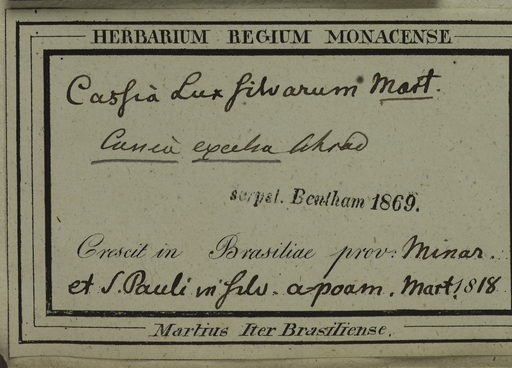 HERBARIUM REGIUM MONACENSE
Cassia Lux silvarum Mart.
Cassia excelsa Schrad
scrpst. Bentham 1869.
Crescit in Brasiliae prov: Minar.
et S. Pauli in silv. Mart. 1818
Martius Iter Brasiliense.